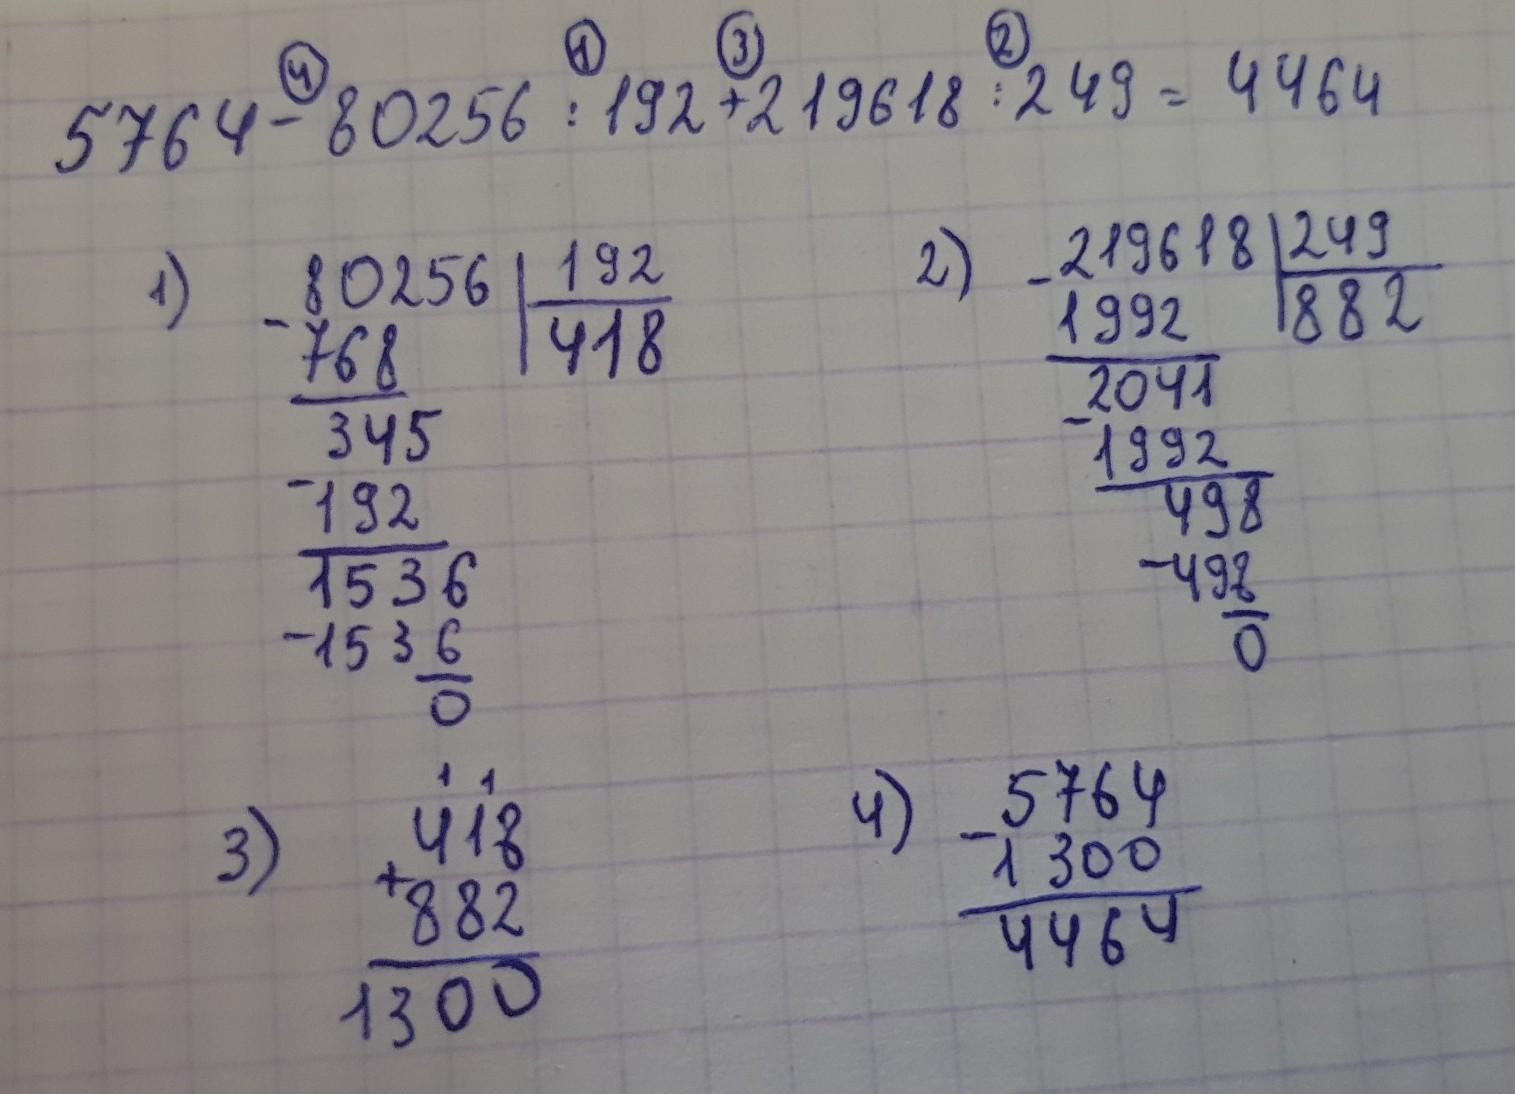 ④ ① ③ ②
5764 - 80256 : 192 + 219618 : 249 = 4464
1) - 80256 | 192
768 | 418
345
- 192
1536
- 1536
0
2) - 219618 | 249
1992 | 882
2041
- 1992
498
- 498
0
3) 1 1
418
+ 882
1300
4) - 5764
1300
4464